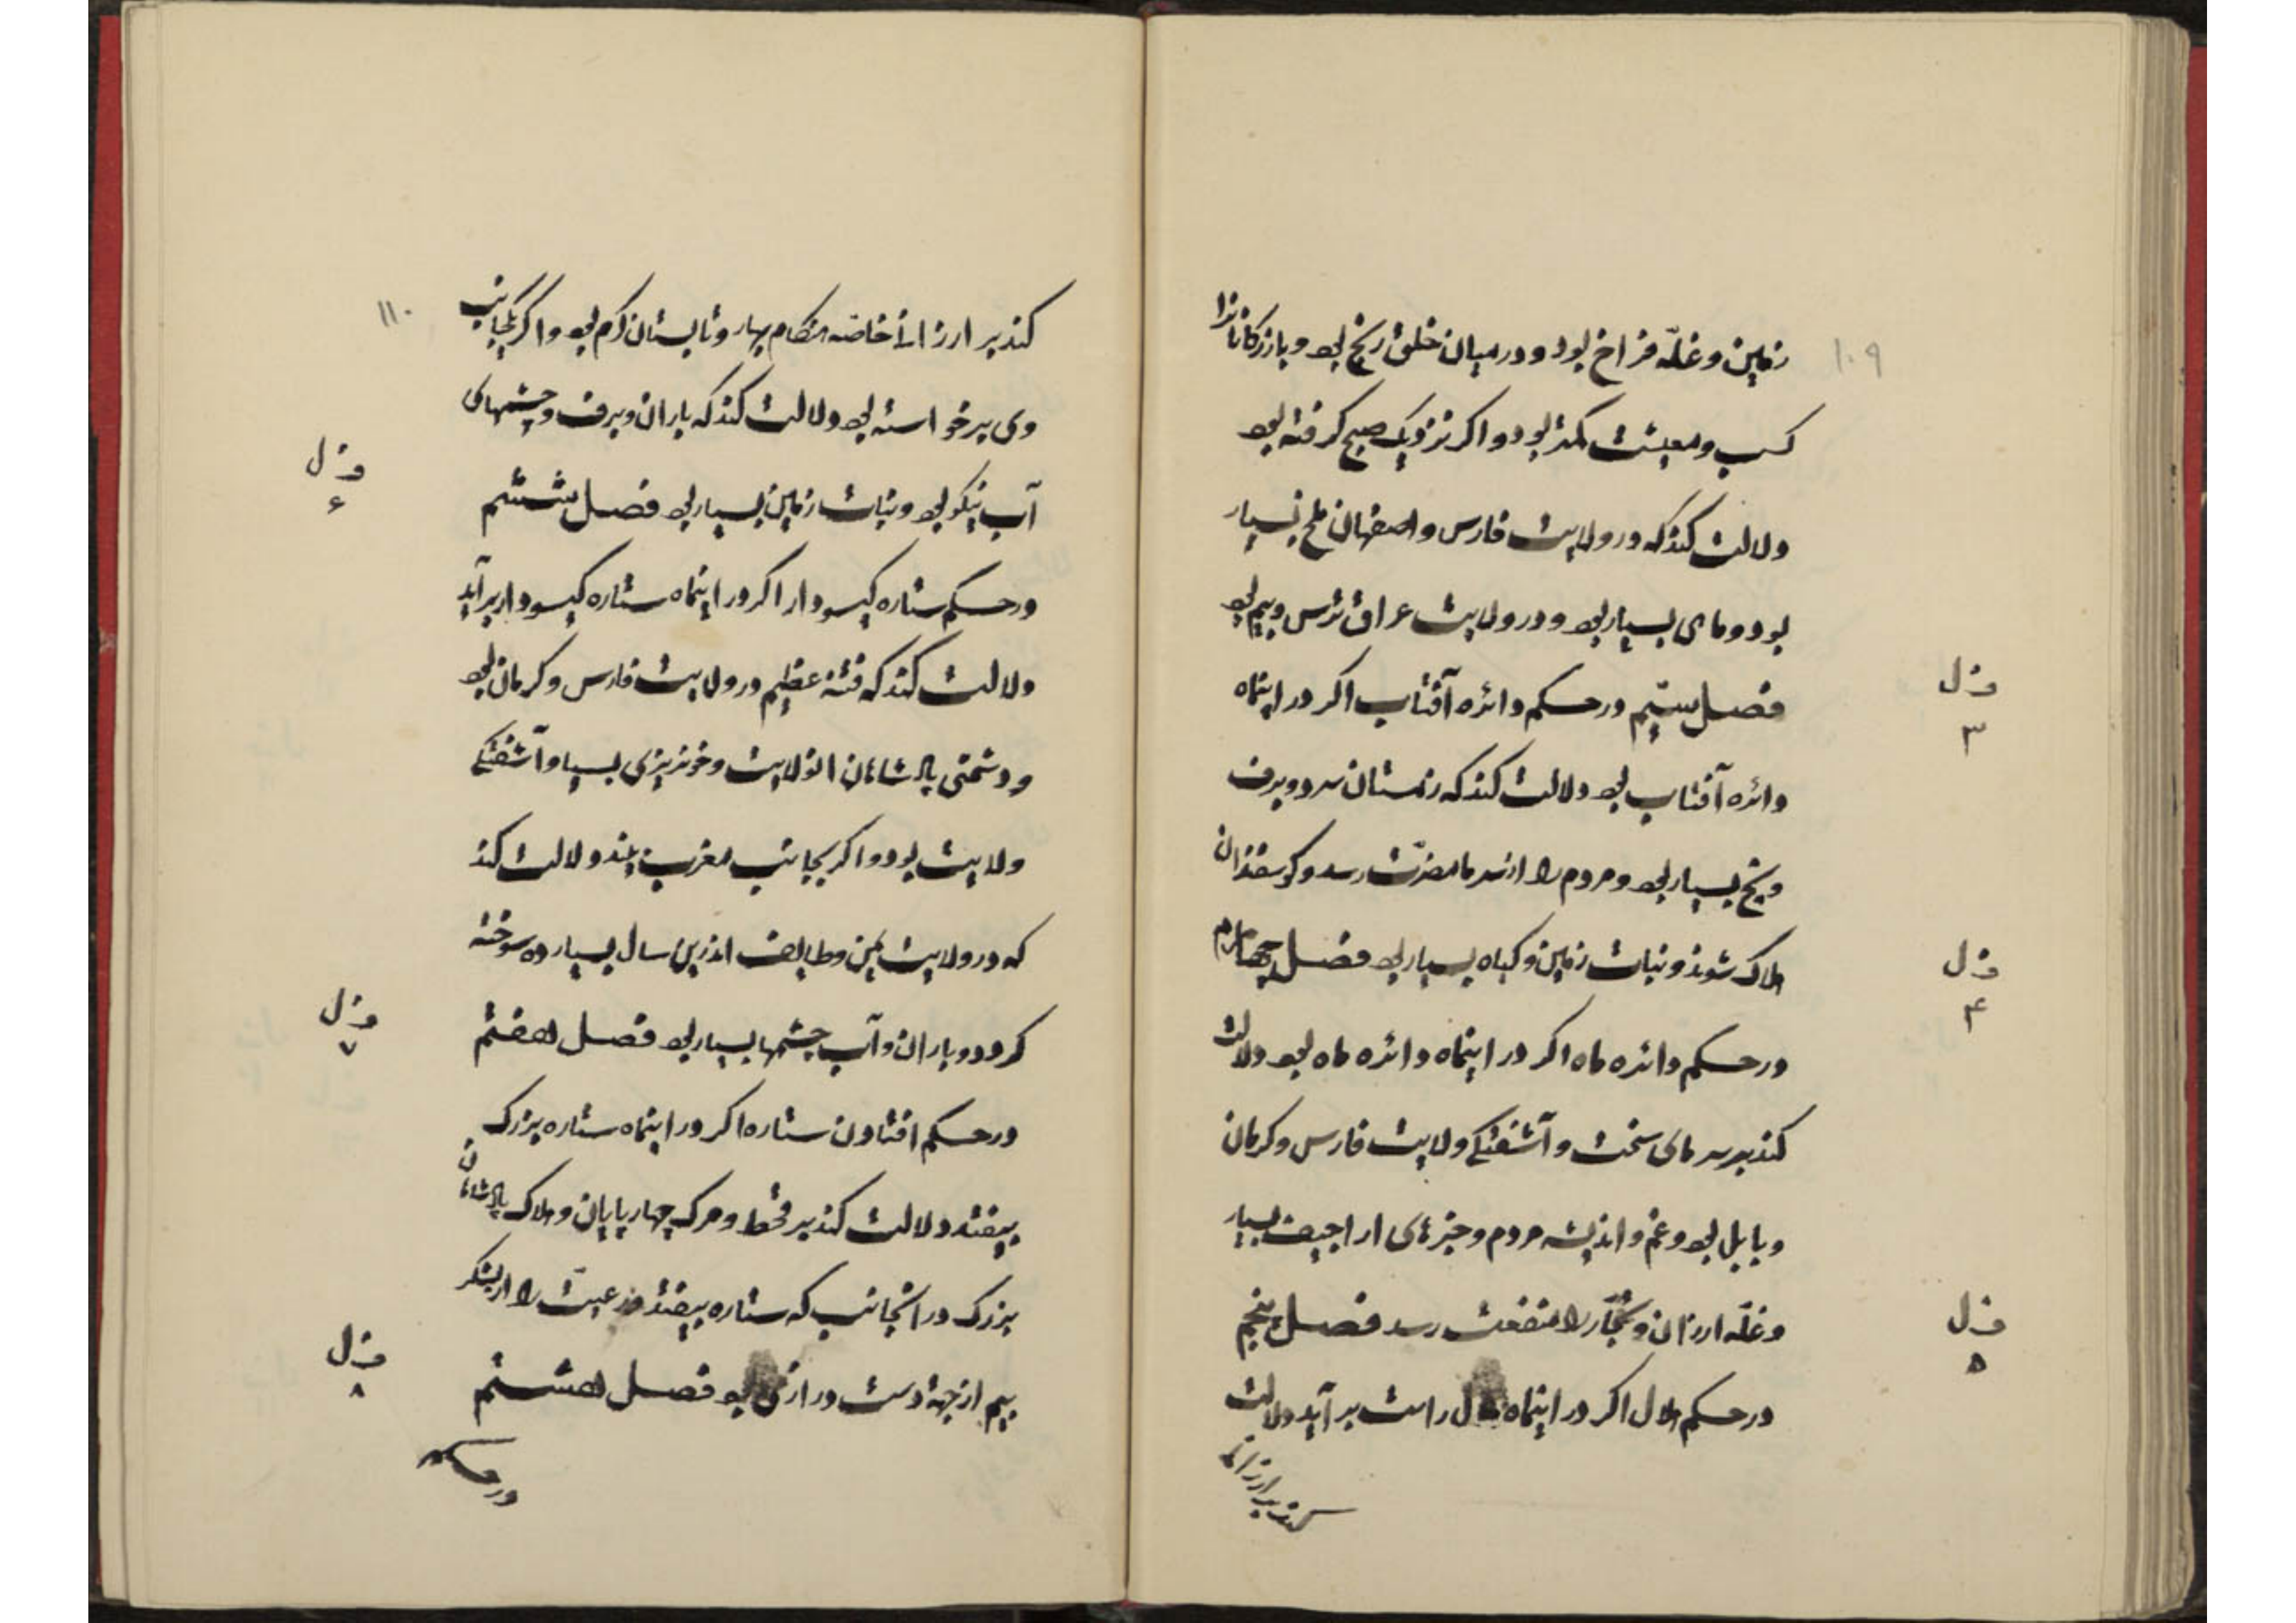 ۱۰۹
زمین و غلّه فراخ بود و در میان خلق رنج بود و بازرکانانرا
کسب و معیشت کمتر بود و اکر نزدیک صبح کرفته بود
دلالت کند که در ولایت فارس و اصفهان ملخ بسیار
بود و وبای بسیار بود و در ولایت عراق ترس و بیم بود
فصل سیّم در حکم دائره آفتاب اکر در اینماه
ف ل
۳
دائره آفتاب بود دلالت کند که زمستان سرد و برف
و یخ بسیار بود و مردم را از سرما مضرّت رسد و کوسفندان
هلاک شوند و نبات زمین و کیاه بسیار بود فصل چهارم
ف ل
۴
در حکم دائره ماه اکر در اینماه دائره ماه بود دلالت
کند بر سرمای سخت و آشفتکی ولایت فارس و کرمان
و بابل بود و غم و اندیشه مردم و خبرهای اراجیف بسیار
و غلّه ارزان و تجّار را منفعت رسد فصل پنجم
ف ل
۵
در حکم هلال اکر در اینماه هلال راست بر آید دلالت
کند بر ارزانی
۱۱۰
کند بر ارزانی خاصّه هنکام بهار و تابستان کرم بود و اکر یکجانب
وی برخواسته بود دلالت کند که باران و برف و چشمهای
آب نیکو بود و نبات زمین بسیار بود فصل ششم
ف ل
۶
در حکم ستاره کیسودار اکر در اینماه ستاره کیسودار برآید
دلالت کند که فتنه عظیم در ولایت فارس و کرمان بود
و دشمنی پادشاهان انولایت و خونریزی بسیار و آشفتکی
ولایت بود و اکر بجانب مغرب بیند دلالت کند
که در ولایت یمن و طایف اندرین سال بسیار ده سوخته
کردد و باران و آب چشمها بسیار بود فصل هفتم
ف ل
۷
در حکم افتادن ستاره اکر در اینماه ستاره بزرک
بیفتد دلالت کند بر قحط و مرک چهارپایان و هلاک پادشاهان
بزرک در انجانب که ستاره بیفتد و رعیّت را از لشکر
بیم از جهة دست درازی بود فصل هشتم
ف ل
۸
در حکم